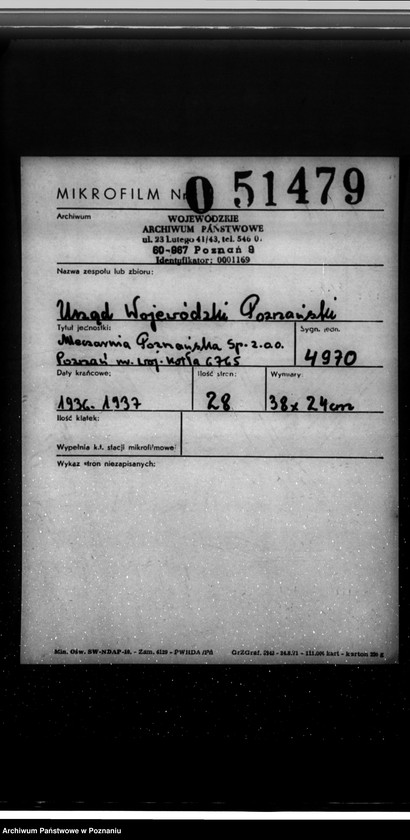 MIKROFILM Nr 0 51479
Archiwum
WOJEWÓDZKIE
ARCHIWUM PAŃSTWOWE
ul. 23 Lutego 41/43, tel. 546 0.
60-967 Poznań 9
Identyfikator: 0001169
Nazwa zespołu lub zbioru:
Urząd Wojewódzki Poznański
Tytuł jednostki:
Sygn. mon.
Mleczarnia Poznańska Sp. z.o.o.
Poznań m. woj. Kotła 6765
4970
Daty krańcowe:
Ilość stron:
Wymiary:
1936-1937
28
38x24cm
Ilość klatek:
Wypełnia k.t. stacji mikrofilmowej
Wykaz stron niezapisanych:
Min. Ośw. SW-NDAP-18. - Zam. 4120 - PWHDA /Pń
Archiwum Państwowe w Poznaniu